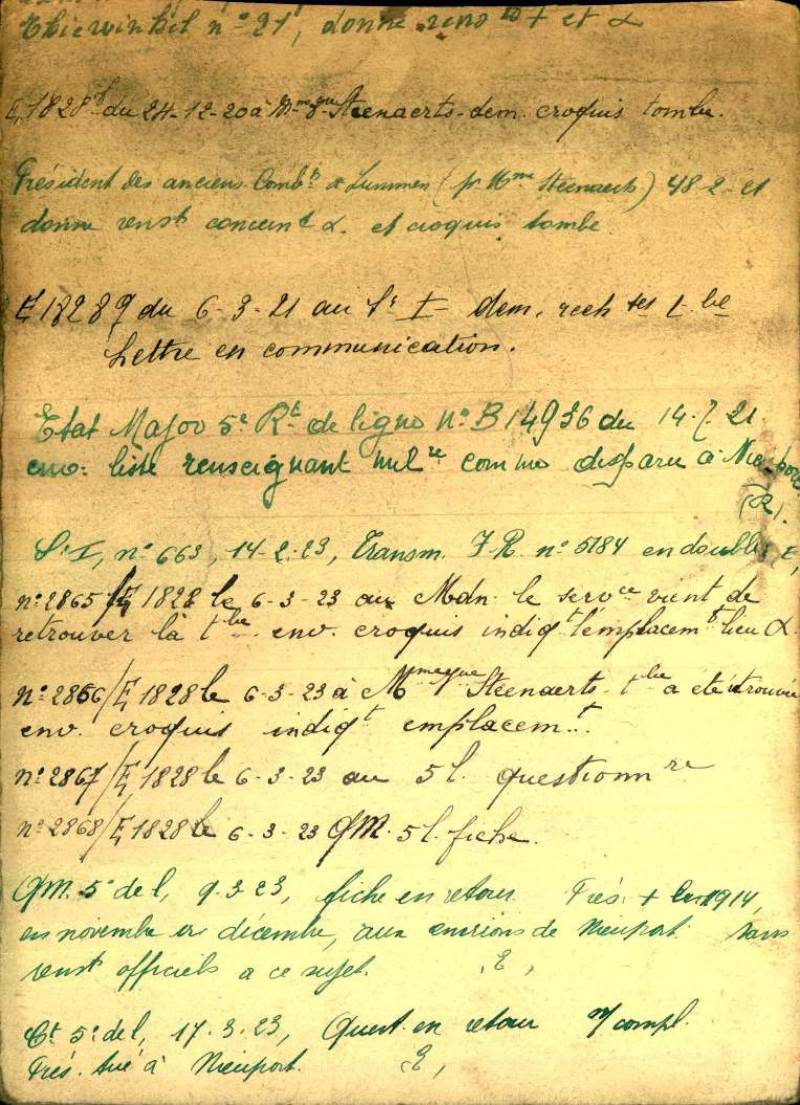 n° 21, donné rens ts + et α
E, 1828 du 24-12-20 à Mme Steenaerts - dem. croquis tombe.
Président des anciens Combts de Lummen (pr Mme Steenaerts) 48-2- et
donne renst concernt α. et croquis tombe
du 6-3-21 au Sr I - dem. rech tes t. be
Lettre en communication.
Etat Major 5e Rt de ligne n° B 14936 du 14-7-21
env. liste renseignant milre comme disparu à Nieuport
(R).
Sr I, n° 663, 14-2-23, Transm. F.R. n° 5184 en double E,
n° 2865/E, 1828 le 6-3-23 au Mdn. le servce vient de
retrouver la tbe env. croquis indiqt l'emplacemt lieu α.
n° 2866/E, 1828 le 6-3-23 à Mme Steenaerts - tbe a été retrouvée
env. croquis indiqt emplacemt.
n° 2867/E, 1828 le 6-3-23 au 5 l. questionnre
n° 2868/E, 1828 le 6-3-23 QM. 5 l. fiche.
QM. 5e de l, 9-3-23, fiche en retour Prés. + 1914,
en novembre ou décembre, aux environs de Nieuport. Sans
renst officiels a ce sujet. E,
Ct 5e de l, 17-3-23, Quest. en retour n/ compl.
Prés. tué à Nieuport. E,